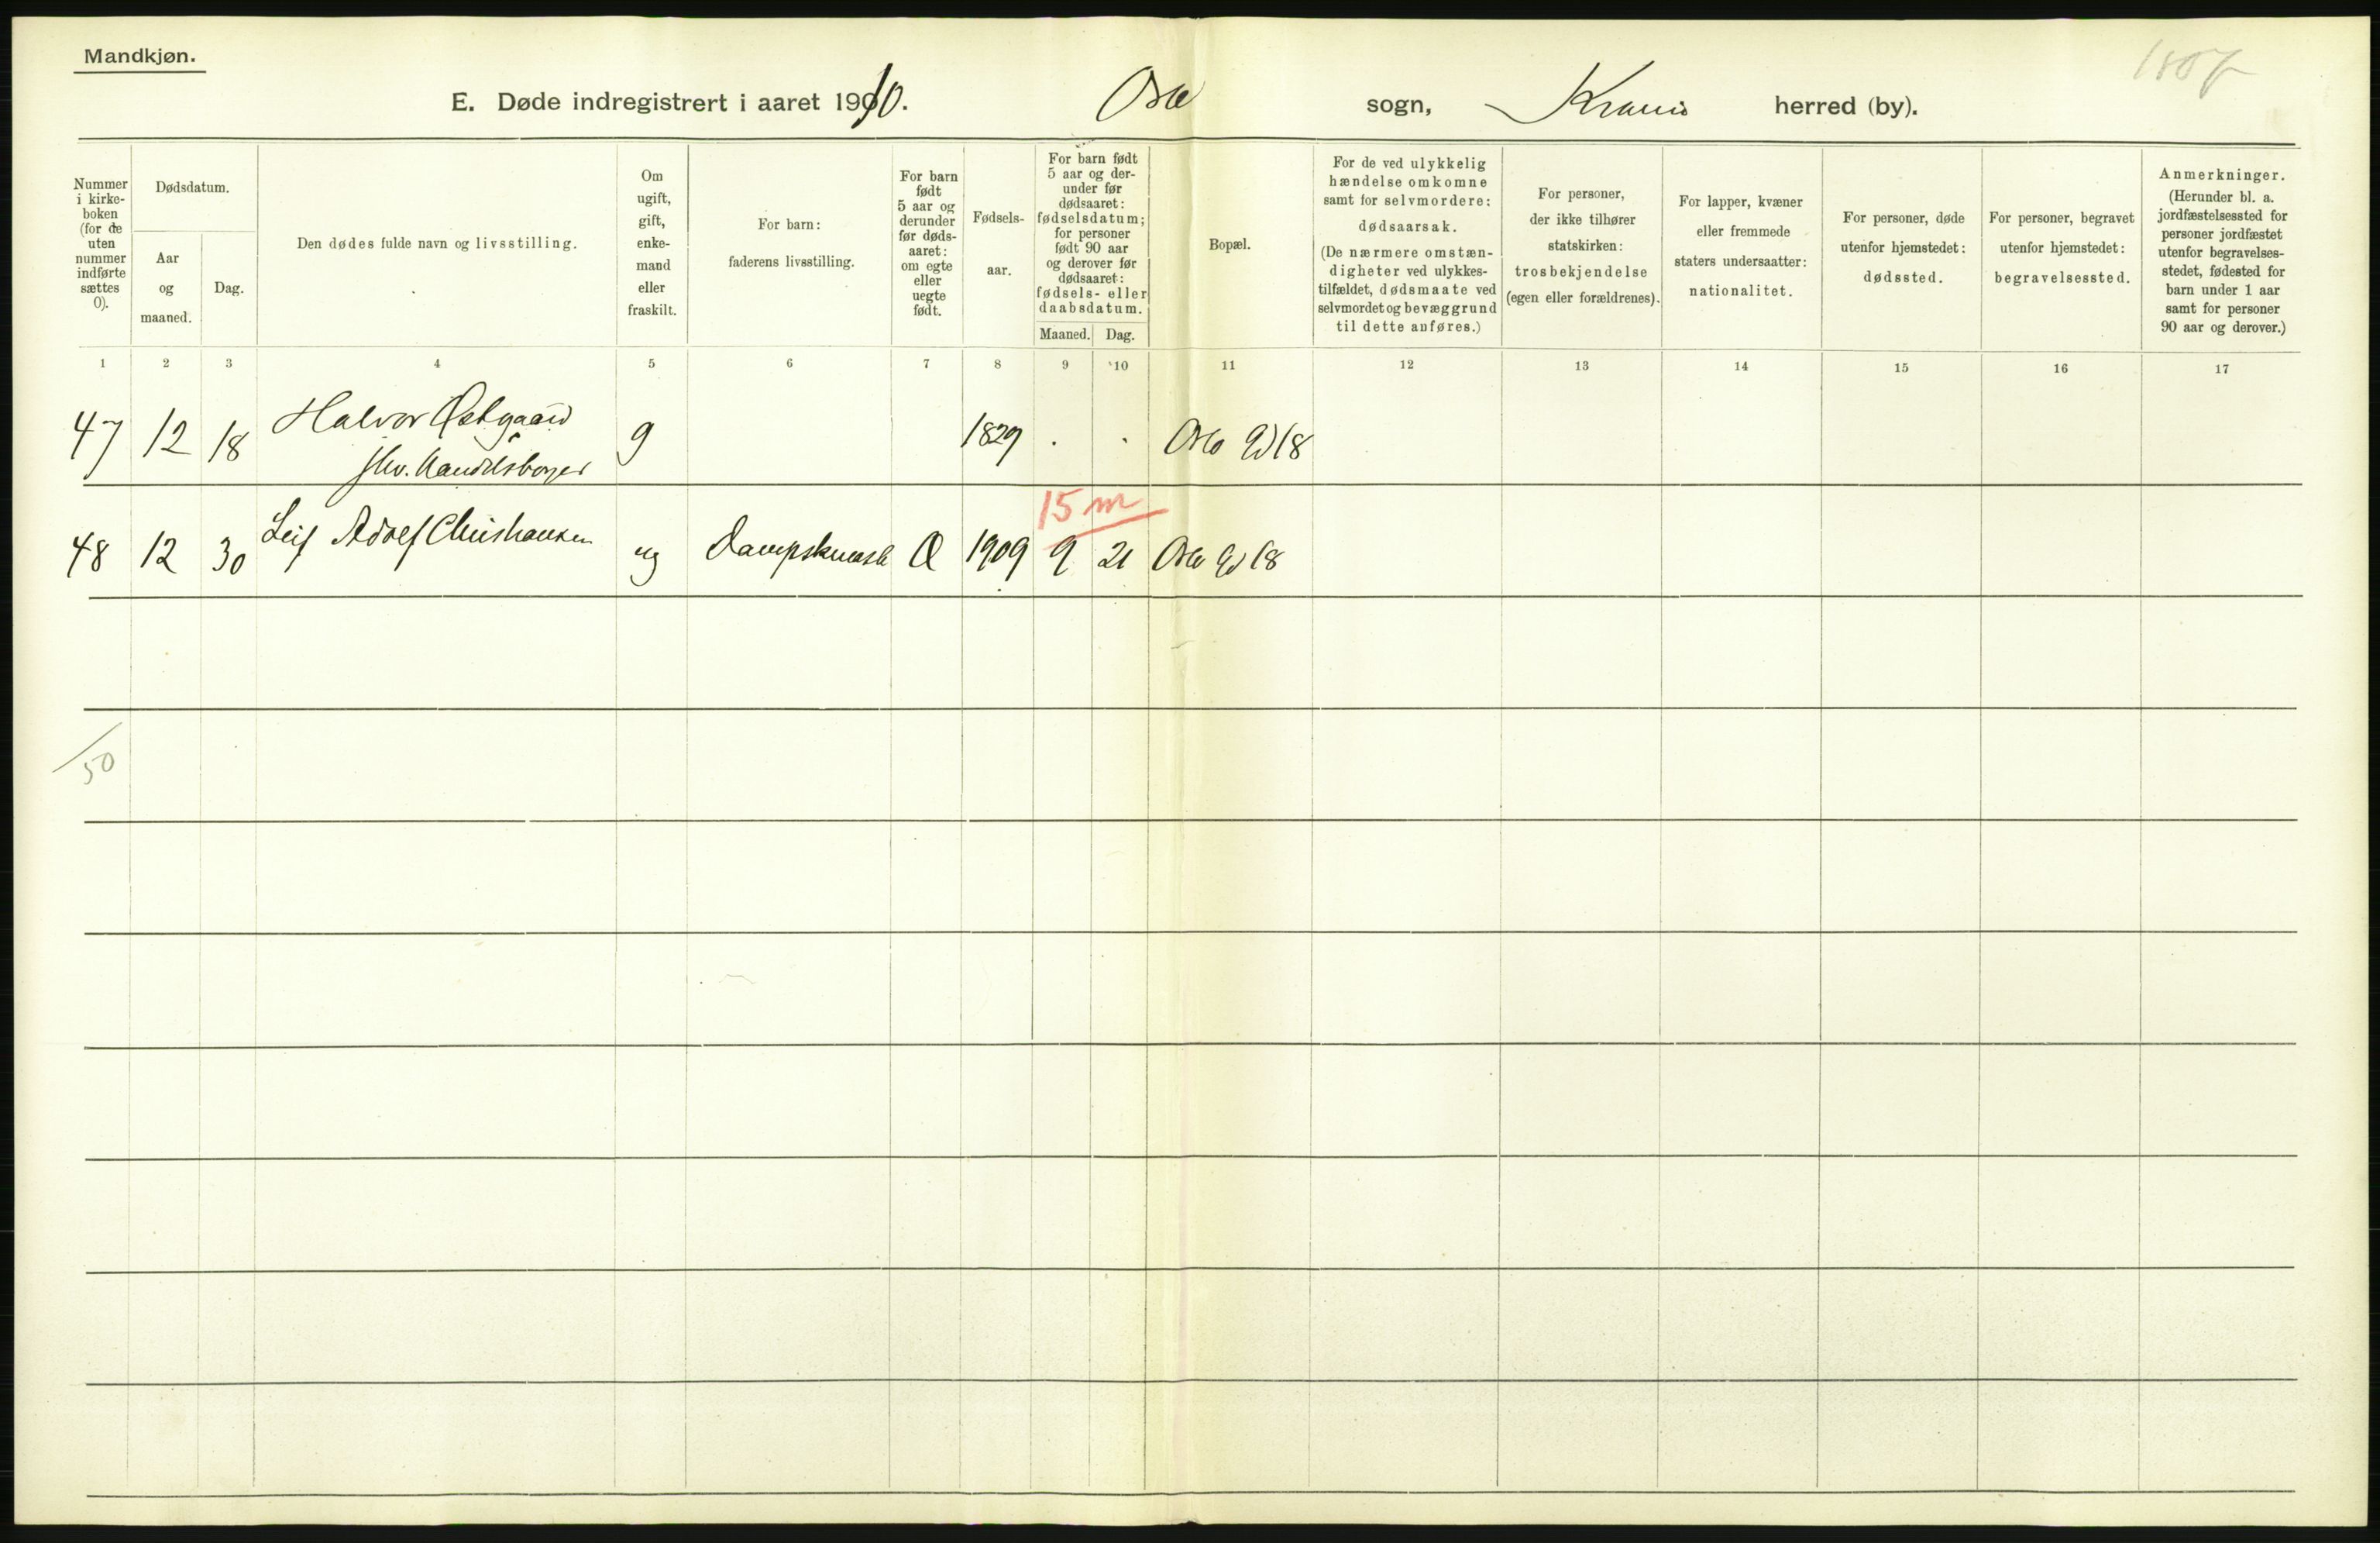 Mandkjøn.
E. Døde indregistrert i aaret 1910. Oslo sogn, Krania herred (by).
Nummer i kirke-boken (for de uten nummer indførte sættes 0).
Dødsdatum.
Aar og maaned.
Dag.
Den dødes fulde navn og livsstilling.
Om ugift, gift, enke-mand eller fraskilt.
For barn: faderens livsstilling.
For barn født 5 aar og derunder før døds-aaret: om egte eller uegte født.
Fødsels-aar.
For barn født 5 aar og der-under før dødsaaret: fødselsdatum; for personer født 90 aar og derover før dødsaaret: fødsels- eller daabsdatum.
Maaned. Dag.
Bopæl.
For de ved ulykkelig hændelse omkomne samt for selvmordere: dødsaarsak. (De nærmere omstæn-digheter ved ulykkes-tilfældet, dødsmaate ved selvmordet og bevæggrund til dette anføres.)
For personer, der ikke tilhører statskirken: trosbekjendelse (egen eller forældrenes).
For lapper, kvæner eller fremmede staters undersaatter: nationalitet.
For personer, døde utenfor hjemstedet: dødssted.
For personer, begravet utenfor hjemstedet: begravelsessted.
Anmerkninger. (Herunder bl. a. jordfæstelsessted for personer jordfæstet utenfor begravelses-stedet, fødested for barn under 1 aar samt for personer 90 aar og derover.)
1 2 3 4 5 6 7 8 9 10 11 12 13 14 15 16 17
47 12 18 Halvor Østgaard g 1829 . . Oslo Gd 18
fhv. Handelsborger
15 m
48 12 30 Leif Adolf Christiansen ug Æ 1909 9 21 Oslo Gd 18
50